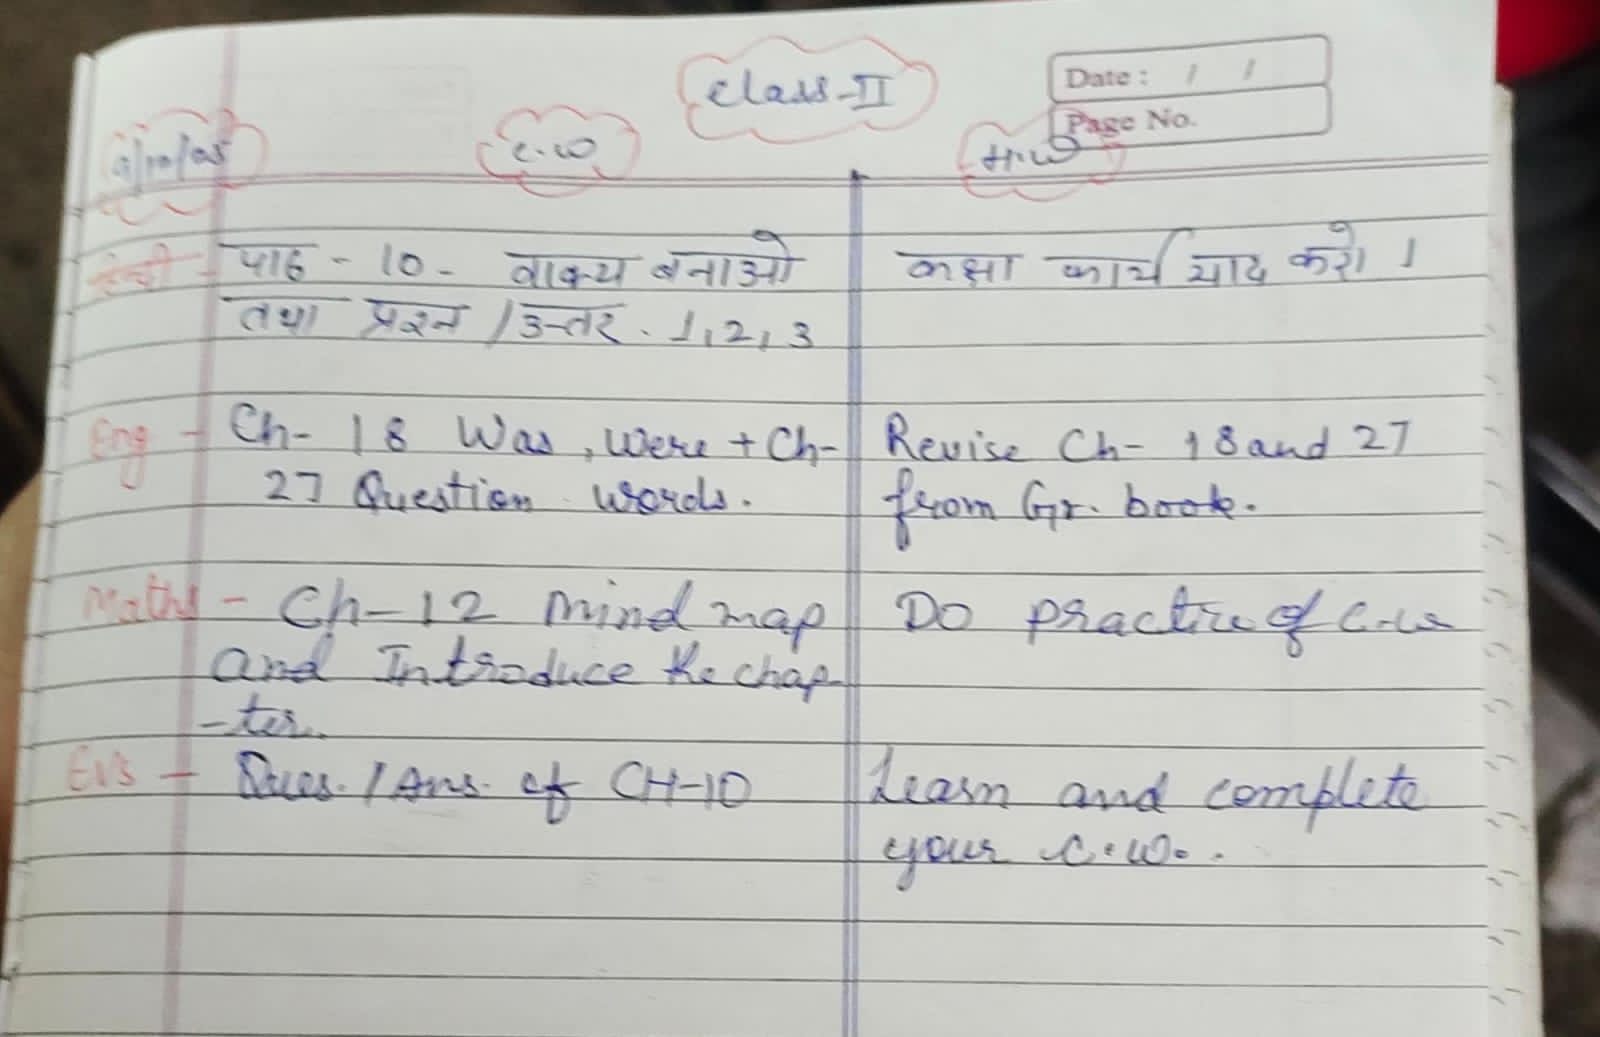 Class-II
Date : / /
Page No.
c.w
H.w
हिन्दी - पाठ - 10 - वाक्य बनाओ
कक्षा कार्य याद करो ।
तथा प्रश्न / उत्तर . 1, 2, 3
Eng - Ch- 18 Was, Were + Ch-
Revise Ch- 18 and 27
27 Question words.
from Gr. book.
Maths - Ch-12 mind map
Do practice of c.w
and Introduce the chap-
-ter.
EVS - Ques. / Ans. of CH-10
Learn and complete
your c.w..